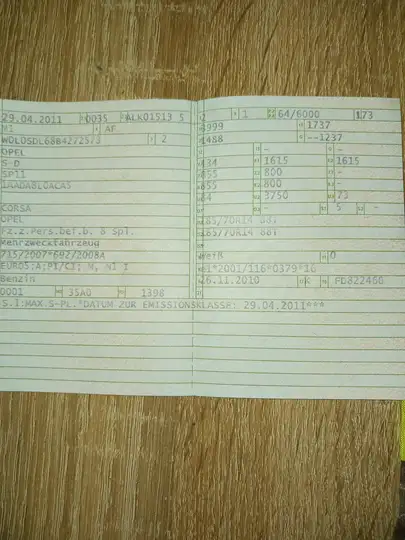 29.04.2011 0035 ALK01513 5
M1 AF
W0L0SDL68B4272573 2
OPEL
S-D
SP11
1AADABL0ACA5
CORSA
OPEL
Fz.z.Pers.bef.b. 8 Spl.
Mehrzweckfahrzeug
715/2007*692/2008A
EURO5;A;PI/CI; M, N1 I
Benzin
0001 35A0 1398
2 1 64/6000 173
3999 1737
1488 --1237
- -
134 1615 1615
855 800 -
855 800 -
64 3750 73
- 5 -
185/70R14 88T
185/70R14 88T
weiß 0
e1*2001/116*0379*16
26.11.2010 K FD822460
S.1:MAX.S-PL.*DATUM ZUR EMISSIONSKLASSE: 29.04.2011***